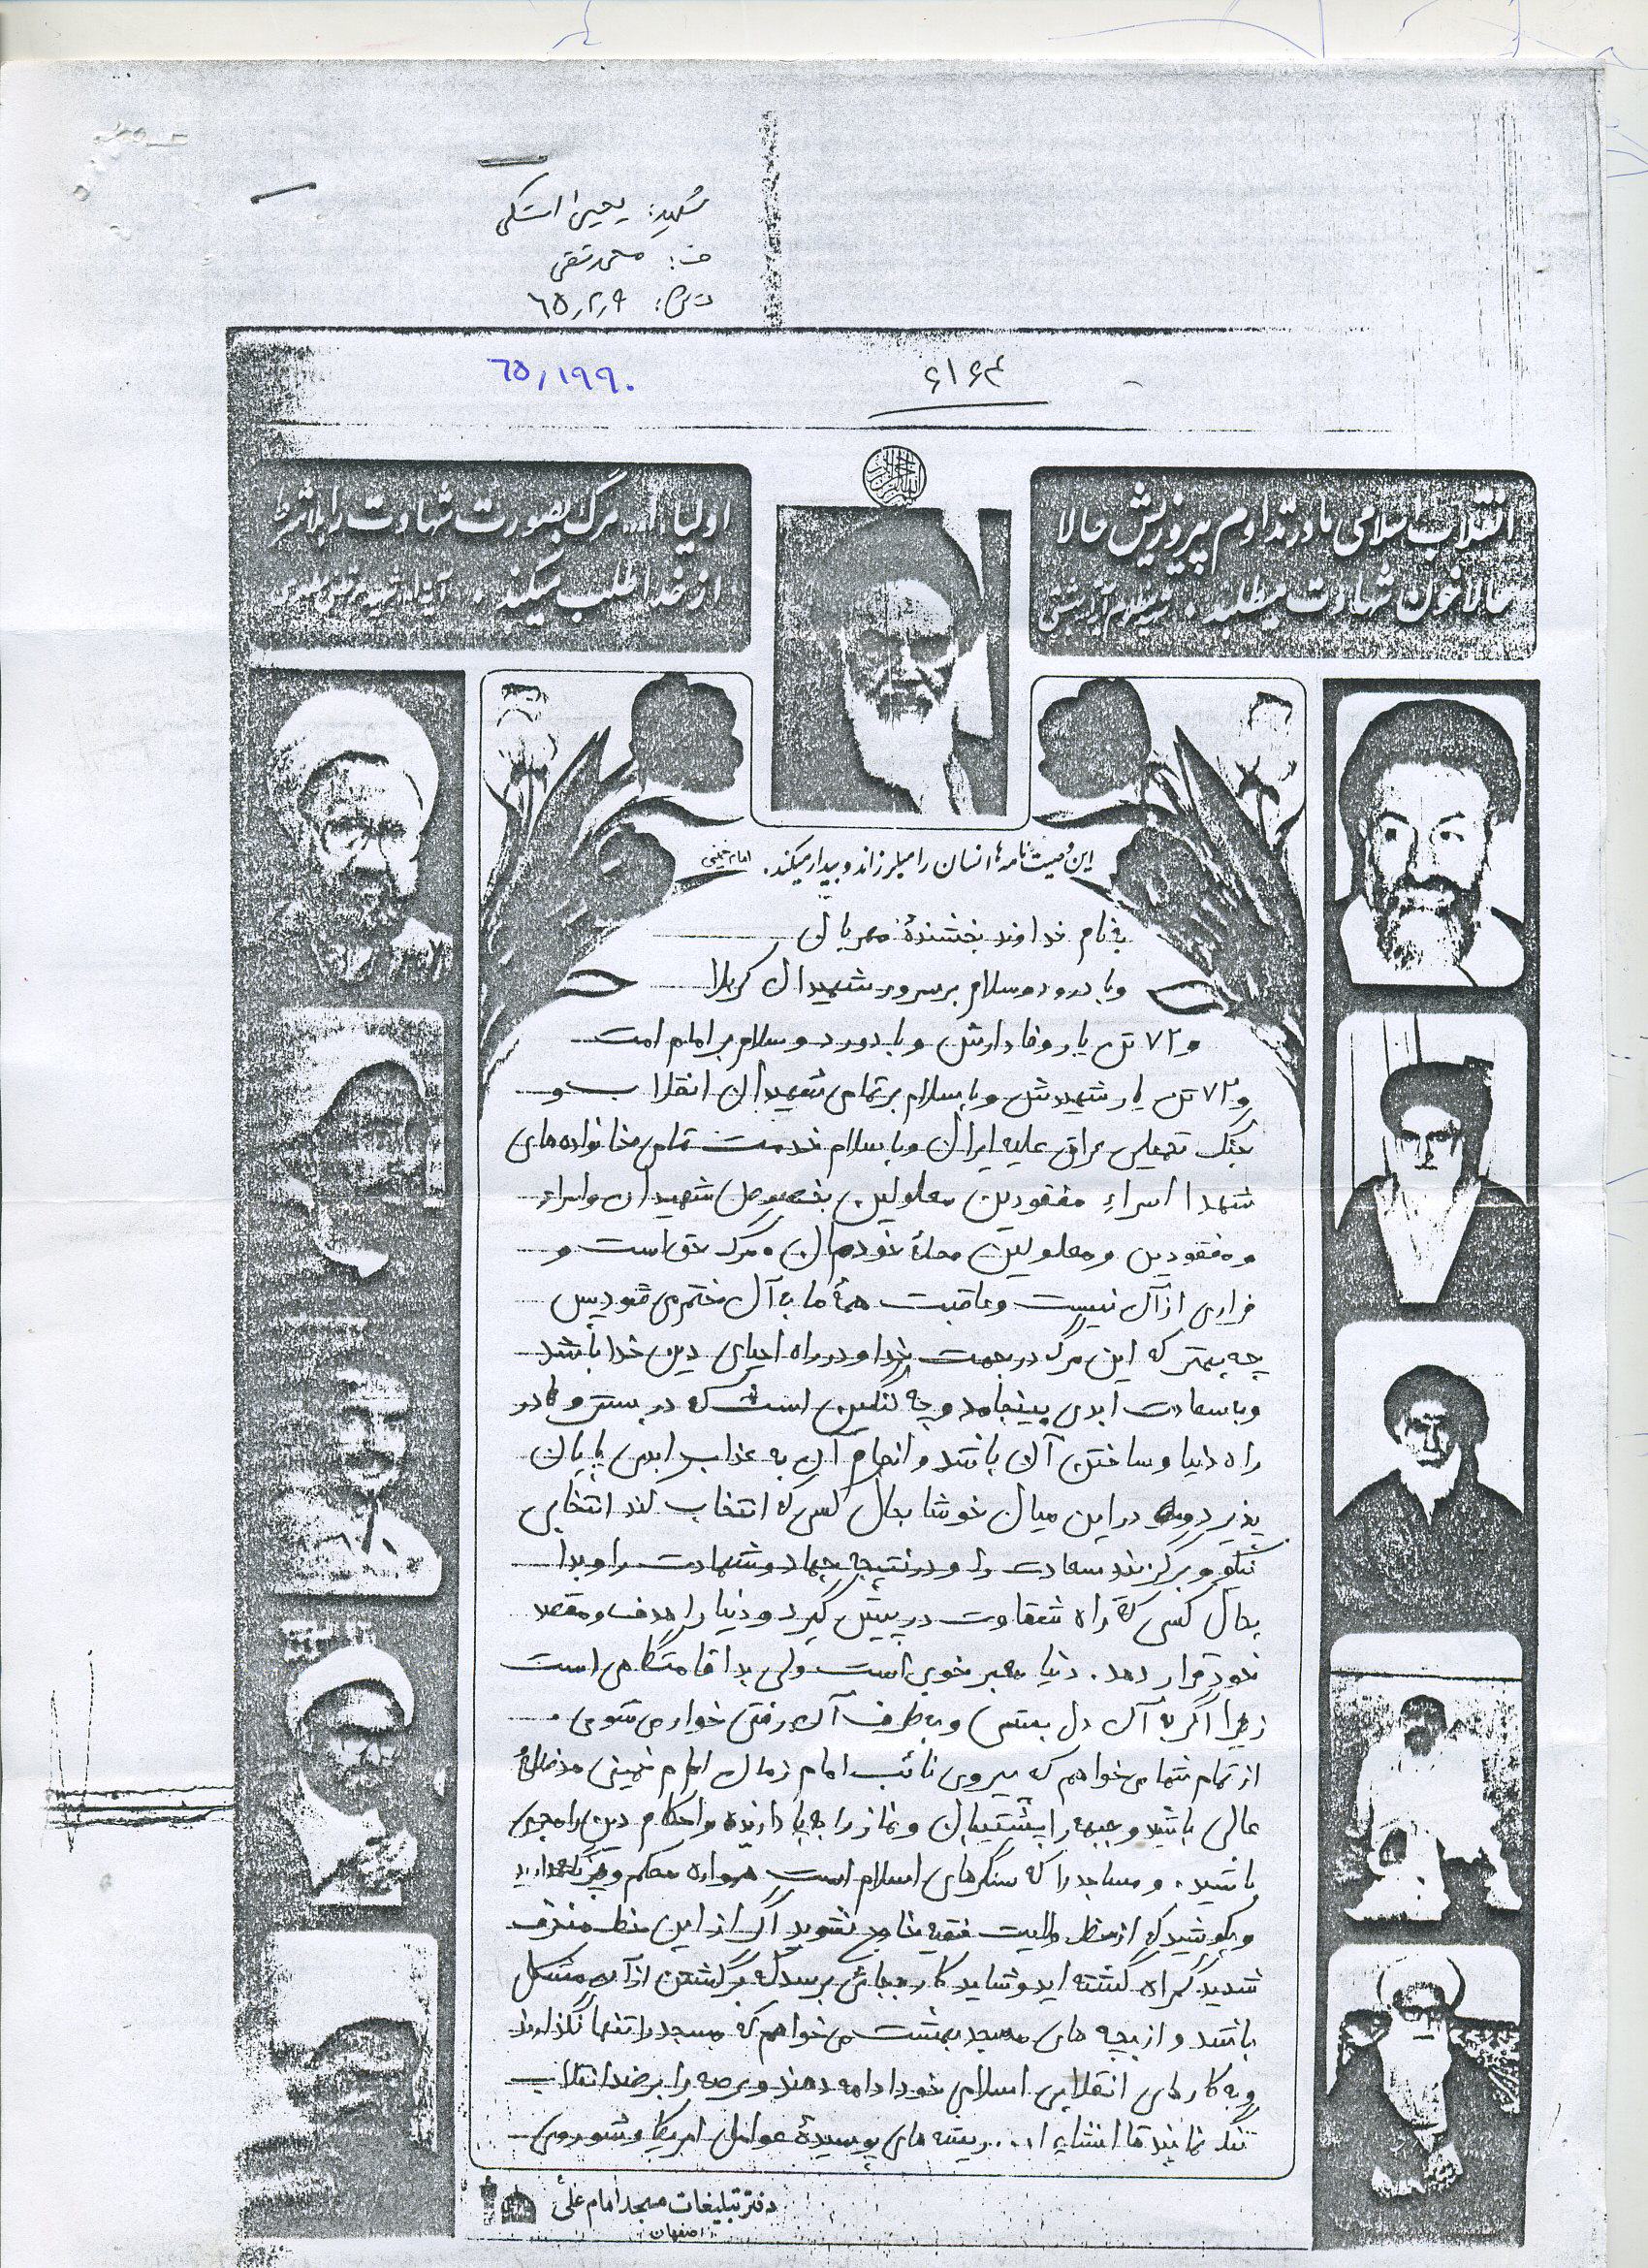 شهید: یحیی اشکی
ف: محمدتقی
ت ش: ٦٥٫٢٫٩
٦٥٫١٩٩٠
۶۱۶۴
انقلاب اسلامی ما در تداوم پیروزیش حالا
حالا خون شهادت میطلبد. شهید مظلوم آیة ا... بهشتی
اولیاء ا... مرگ بصورت شهادت را بلاشرط
از خدا طلب میکنند.
این وصیت نامه ها انسان را میلرزاند و بیدار میکند. امام خمینی
به نام خداوند بخشندهٔ مهربان
وبا درود و سلام بر سرور شهیدان کربلا
و ۷۲ تن یار وفادارش و با درود و سلام بر امام امت
و ۷۲ تن یار شهیدش و با سلام بر تمامی شهیدان انقلاب و
جنگ تحمیلی عراق علیه ایران و با سلام خدمت تمامی خانواده های
شهدا اسراء مفقودین معلولین بخصوص شهیدان و اسراء
و مفقودین و معلولین محلهٔ خودمان. مرگ حق است و
فراری از آن نیست و عاقبت همهٔ ما به آن ختم می شود پس
چه بهتر که این مرگ در جهت خدا و در راه احیای دین خدا باشد
و با سعادت ابدی بینجامد و چه ننگین است که در بستر و یا در
راه دنیا و ساختن آن باشد و انجام آن به عذاب ابدی پایان
پذیرد و در این میان خوشا بحال کسی که انتخاب کند انتخابی
نیکو و برگزیند سعادت را و در نتیجه جهاد و شهادت را و بدا
بحال کسی که راه شقاوت در پیش گیرد و دنیا را هدف و مقصد
خود قرار دهد. دنیا معبر خوبی است ولی بد اقامتگاهی است
زیرا اگر به آن دل بستی و به طرف آن رفتی خوار می شوی.
از تمام شما می خواهم که پیروی نائب امام زمان امام خمینی مدظلهٔ
عالی باشید و جبهه را پشتیبان و نماز را به پا دارنده و احکام دین را مجری
باشید. و مساجد را که سنگرهای اسلام است همواره محکم و نگهدارید
و بکوشید که از خط ولایت فقیه خارج نشوید اگر از این خط منحرف
شدید گمراه گشته اید و شاید کار بجائی برسد که برگشتن از آن مشکل
باشد و از بچه های مسجد بهشت می خواهم که مسجد را تنها نگذارند
و به کارهای انقلابی اسلامی خود ادامه دهند و عرصه را بر ضد انقلاب
تنگ نمایند تا انشاء ا... ریشه های پوسیدهٔ عوامل امریکا و شوروی
دفتر تبلیغات مسجد امام علی
اصفهان